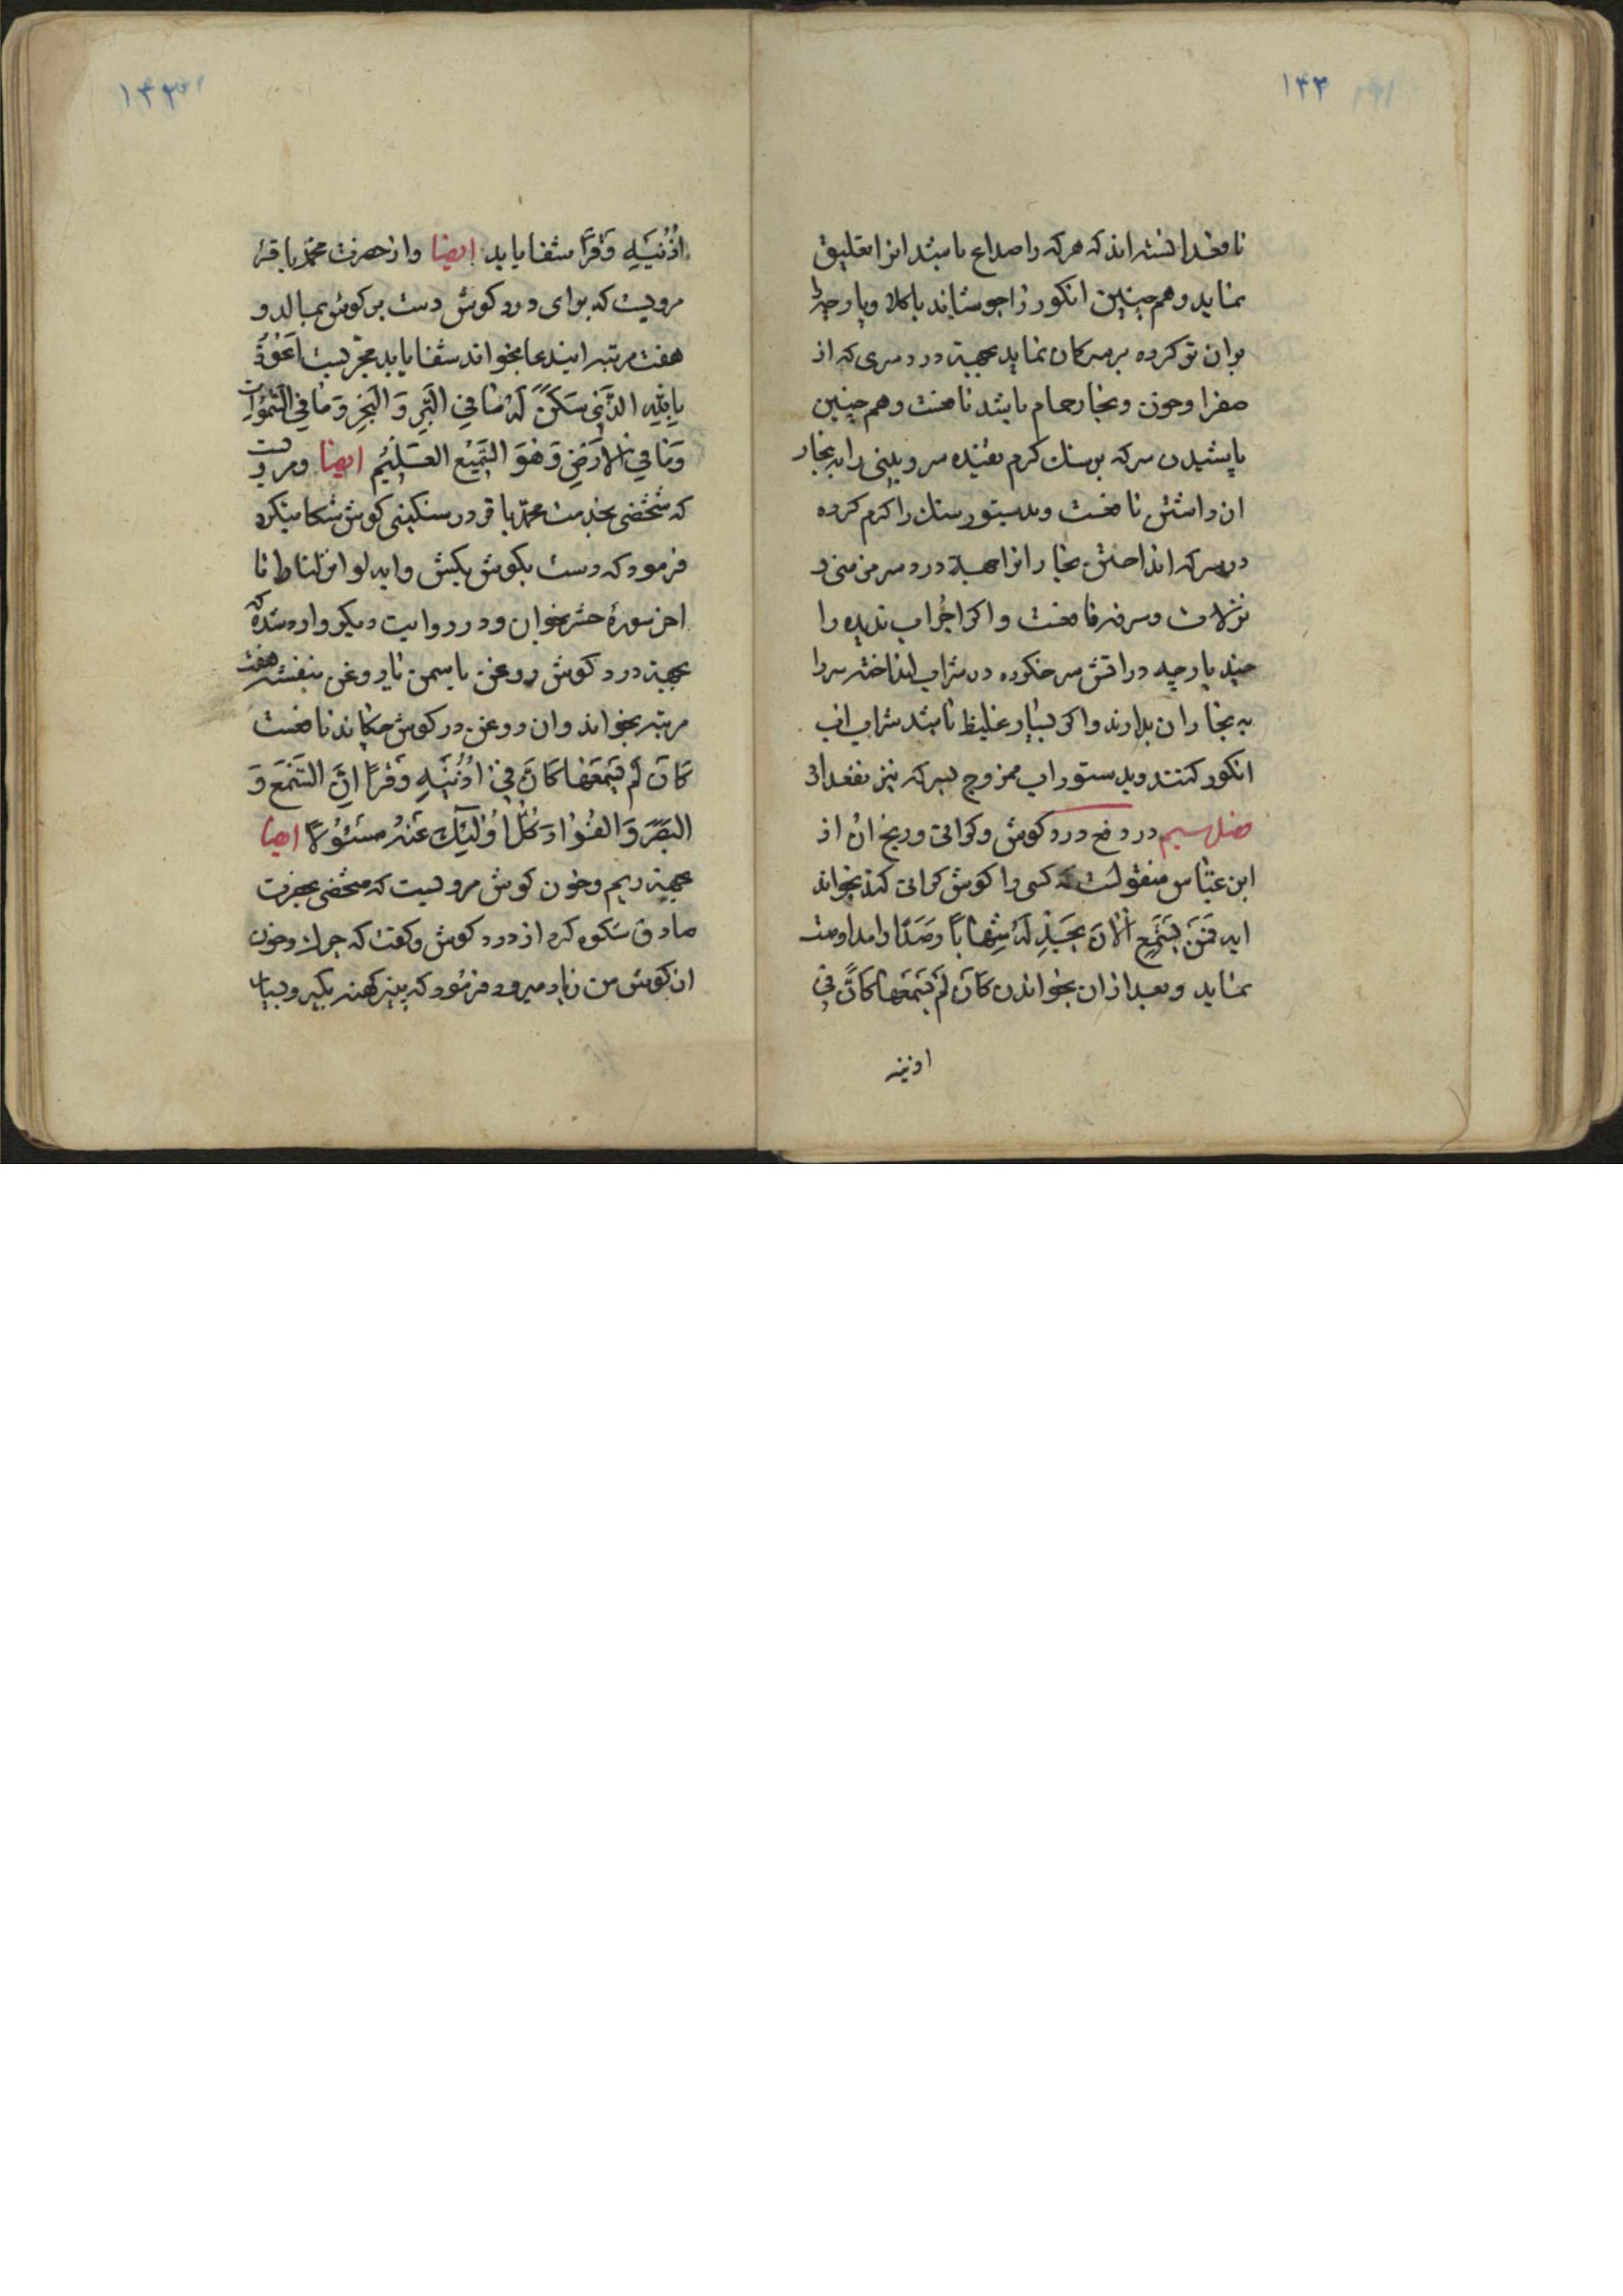 ۱۴۳
نافع دانسته اند که هر که را صداع باشد انرا تعلیق
نماید و هم چنین انکور را جوشاند با کلاو پارچه را
بران تر کرده بر سر کان نماید بجهة درد سری که از
صفرا و خون و بخار حمام باشد نافعست و هم چنین
پاشیدن سرکه بر سنك کرم تفتیده سر و بینی را به بخار
ان داشتن نافعست و بدستور سنك را کرم کرده
در سرکه انداختن بخار انرا جهة درد سر مزمنی و
نزلات و سرفه نافعست و اکر اجراب ندیده را
چند پارچه در اتش سرخ کرده در شراب انداخته سر را
به بخار ان بدارند و اکر بسیار غلیظ باشد شراب اب
انکور کنند و بدستور اب ممزوج بسرکه نیز
فصل سیم در دفع درد کوش و کرانی و ریخ ان از
ابن عباس منقولست که کسی را کوش کرانی کند بخواند
ایه فَمَن یَستَمِعِ الانَ یَجِد لَهُ شِهاباً رَصَدًا و مداومت
نماید و بعد از ان بخواند کَاَن لَم یَسمَعها کَاَنَّ فی
اذنیه
۱۴۳
اُذُنَیهِ وَقرًا شفا یابد ایضا و از حضرت محمد باقر
مرویست که برای درد کوش دست بر کوش بمالد و
هفت مرتبه ایندعا بخواند شفا یابد مجربست اَعُوذُ
بِاللّٰهِ الَّذی سَکَنَ لَهُ مٰا فِی البَرِّ وَ البَحرِ وَ مٰا فِی السَّمٰوٰاتِ
وَ مٰا فِی الاَرضِ وَ هُوَ السَّمیعُ العَلیمُ ایضا و مرویست
که شخصی بخدمت محمد باقر در سنکینی کوش شکایت کرد
فرمود که دست بکوش بکش و ایه لو انزلنا را تا
اخر سورهٔ حشر بخوان و در روایت دیکر وارد شده که
بجهة درد کوش روغن یاسمن یا روغن بنفشه هفت
مرتبه بخواند و ان روغن در کوش چکاند نافعست
کَاَن لَم یَسمَعها کَاَنَّ فی اُذُنَیهِ وَقرًا اِنَّ السَّمعَ وَ
البَصَرَ وَ الفُؤادَ کُلُّ اُولٰئِكَ عَنهُ مَسئُولًا ایضا
بجهة ریم و خون کوش مرویست که شخصی بحضرت
صادق شکوه کرد از درد کوش و کفت که چرك و خون
از کوش من زیاد میرود فرمود که پنیر کهنه بکیر و بسیار